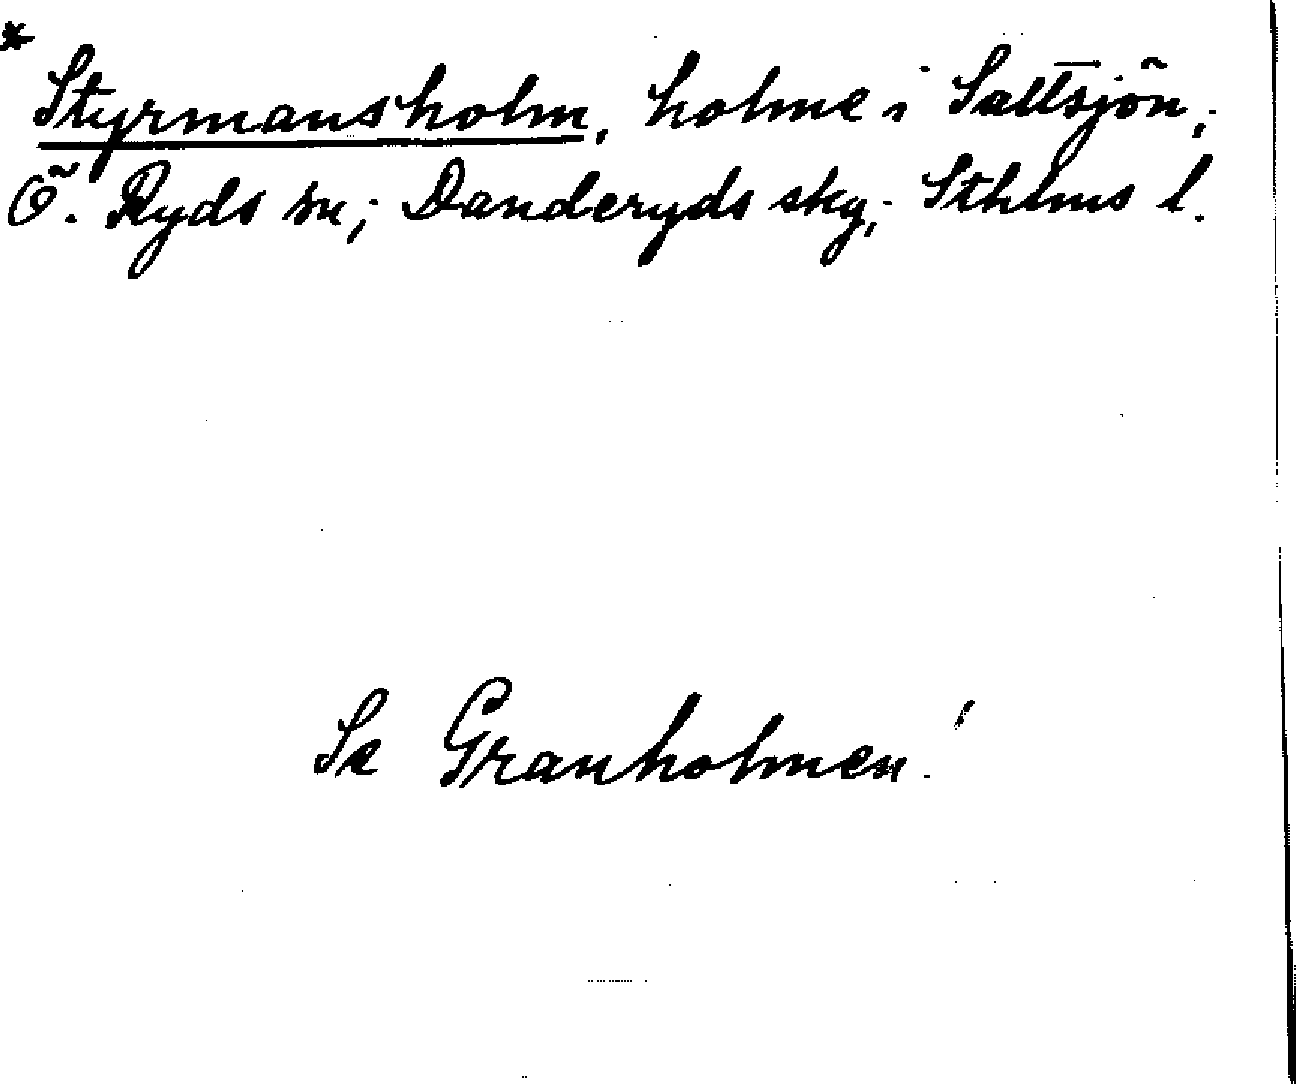 * Styrmansholm, holme i Saltsjön,
Ö. Ryds sn; Danderyds skg; Sthlms l.
Se Granholmen!